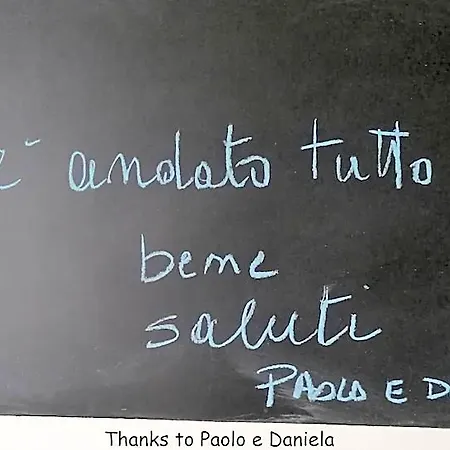 è andato tutto
bene
saluti
PAOLO E D
Thanks to Paolo e Daniela